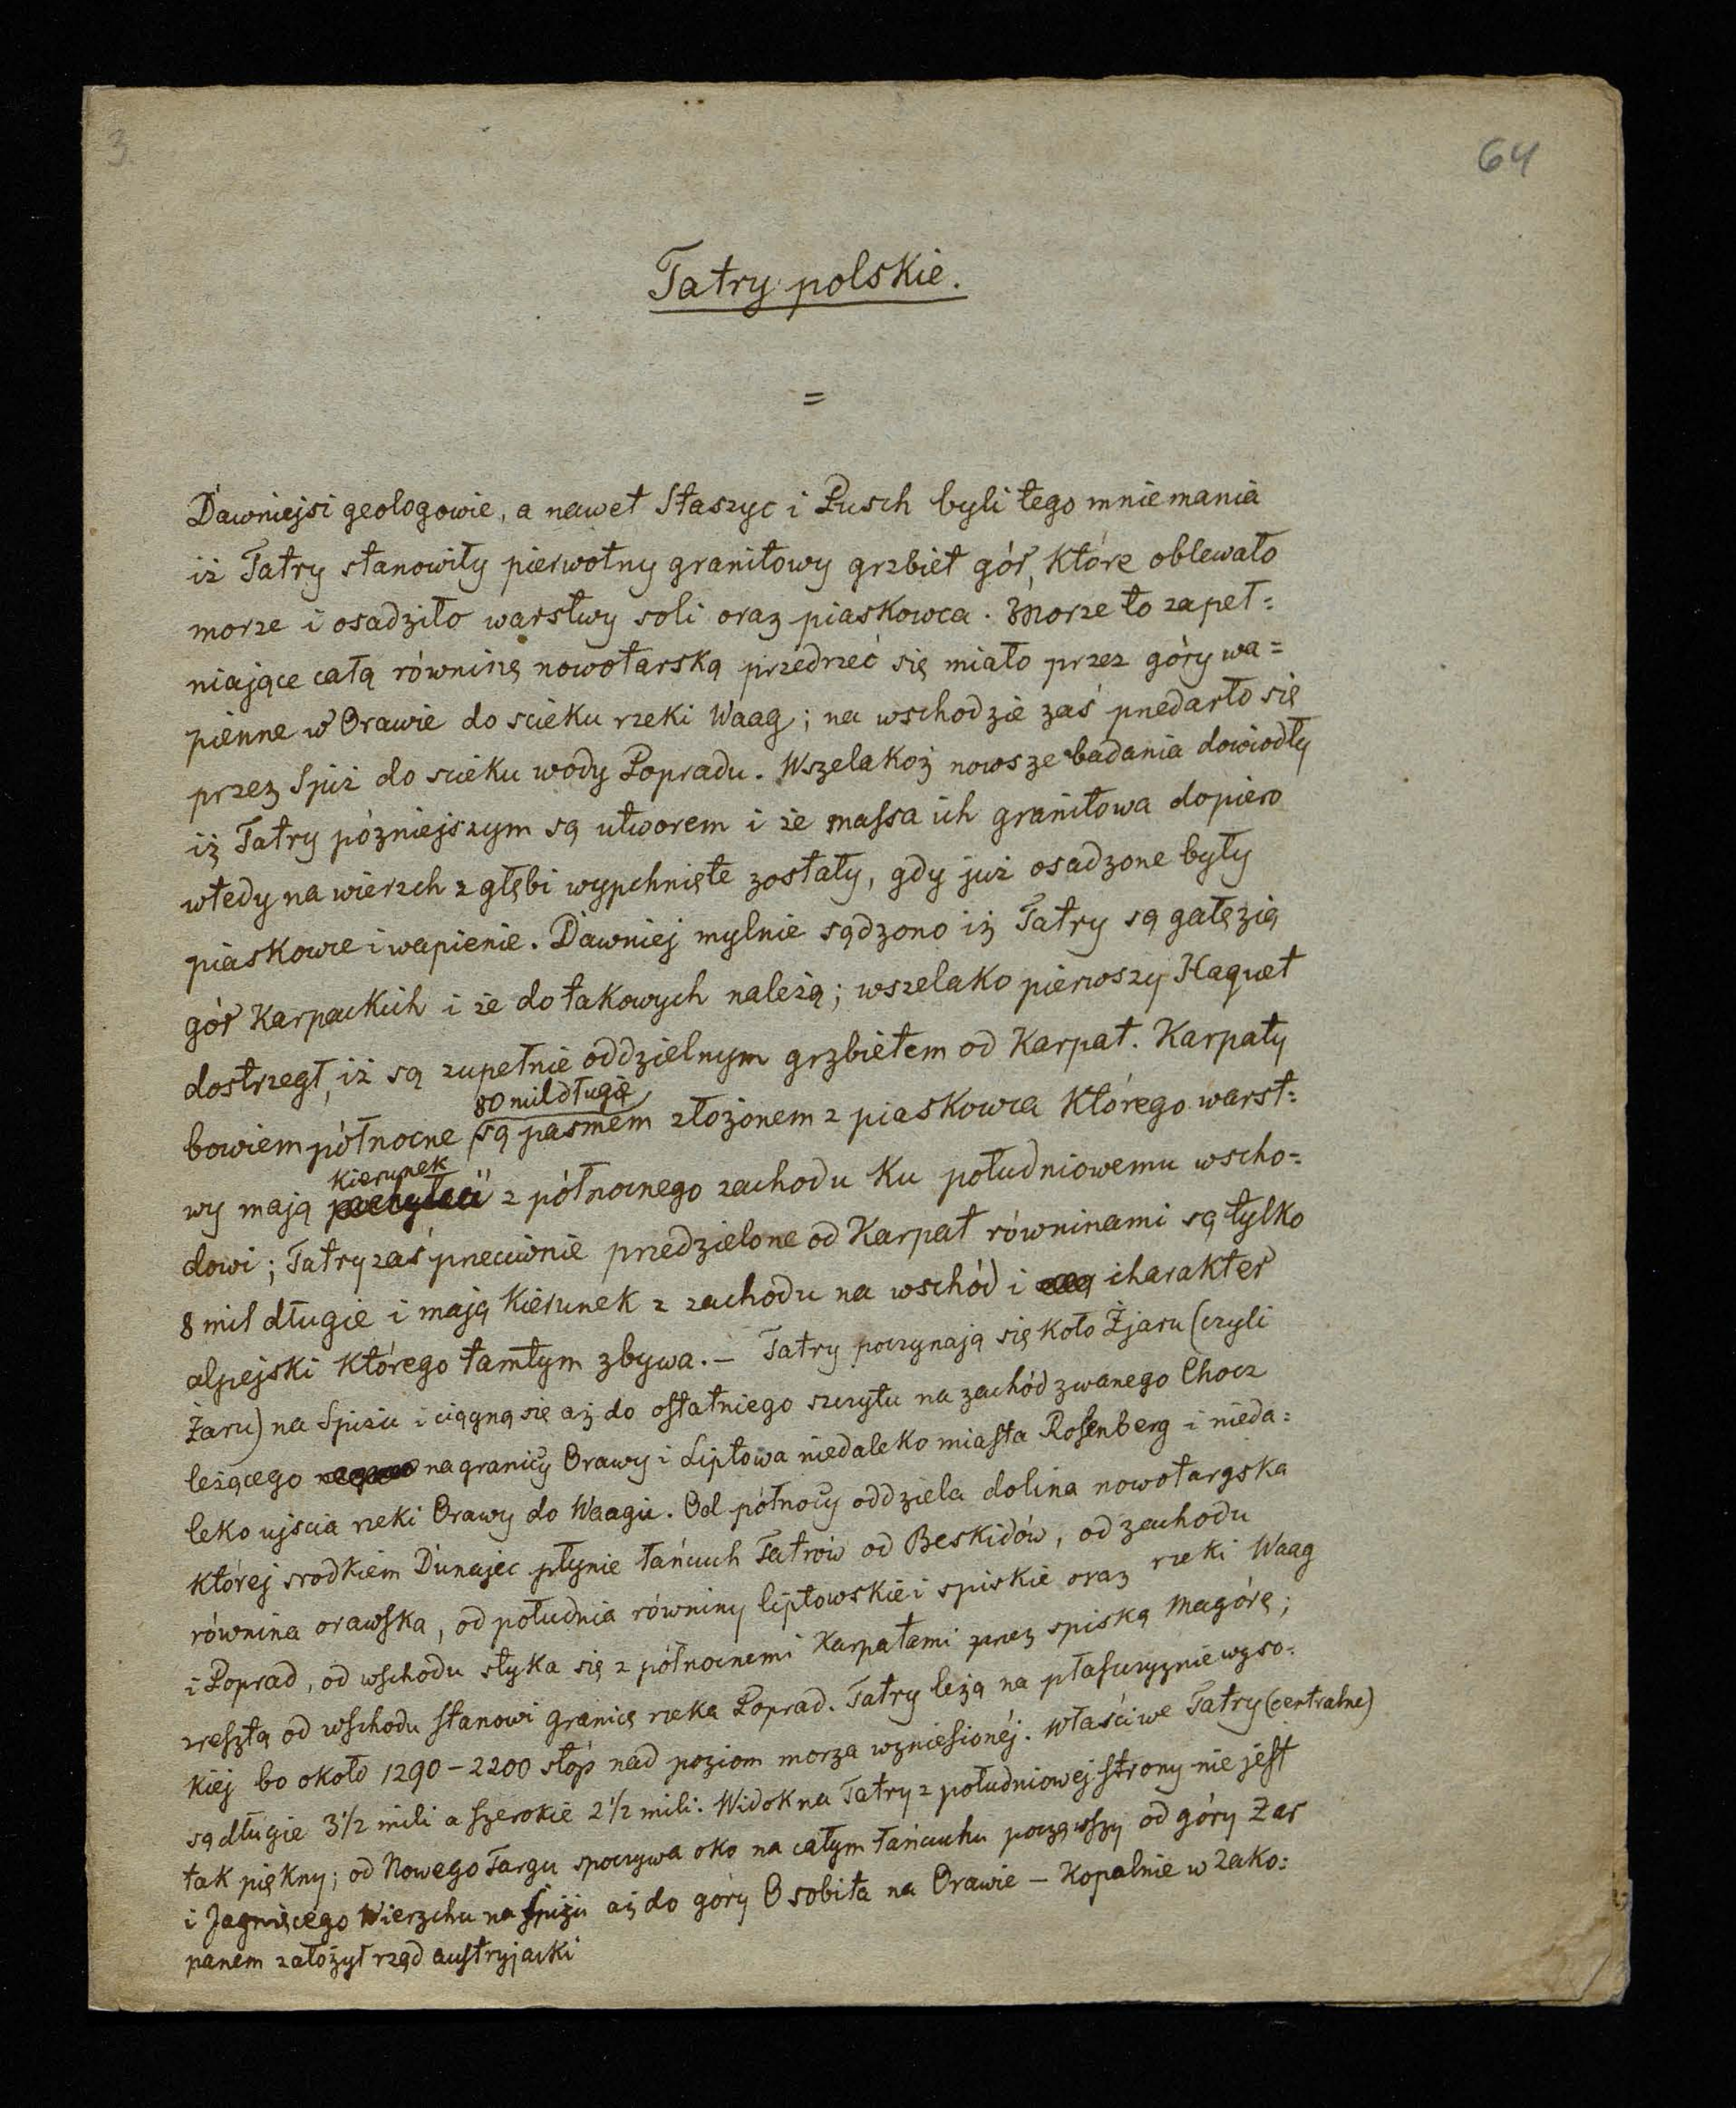 3.
64
Tatry polskie.
=
Dawniejsi geologowie, a nawet Staszyc i Pusch byli tego mniemania
iż Tatry stanowiły pierwotny granitowy grzbiet gór, które oblewało
morze i osadziło warstwy soli oraz piaskowca. Morze to zapeł=
niające całą równinę nowotarską przedrzeć się miało przez góry wa=
pienne w Orawie do scieku rzeki Waag; na wschodzie zaś przedarło się
przez Spiż do scieku wody Popradu. Wszelakoż nowsze badania dowiodły
iż Tatry póżniejszym są utworem i że massa ich granitowa dopiero
wtedy na wierzch z głębi wypchnięte zostały, gdy już osadzone były
piaskowce i wapienie. Dawniej mylnie sądzono iż Tatry są gałęzią
gór Karpackich i że do takowych należą; wszelako pierwszy Haquet
dostrzegł, iż są zupełnie oddzielnym grzbietem od Karpat. Karpaty
80 mil długie
bowiem północne są pasmem złożonem z piaskowca którego warst=
kierunek
wy mają z północnego zachodu ku południowemu wscho=
dowi; Tatry zaś przeciwnie przedzielone od Karpat równinami są tylko
8 mil długie i mają kierunek z zachodu na wschód i charakter
alpejski którego tamtym zbywa. – Tatry poczynają się koło Żjaru (czyli
Żaru) na Spiżu i ciągną się aż do ostatniego szczytu na zachód zwanego Chocz
leżącego na granicy Orawy i Liptowa niedaleko miasta Rosenberg i nieda=
leko ujścia rzeki Orawy do Waagu. Od północy oddziela dolina nowotargska
której srodkiem Dunajec płynie łańcuch Tatrów od Beskidów, od zachodu
równina orawska, od południa równiny liptowskie i spiskie oraz rzeki Waag
i Poprad, od wschodu styka się z północnemi Karpatami przez spiską Magórę;
zresztą od wschodu stanowi granicę rzeka Poprad. Tatry leżą na płaszczyznie wyso=
kiej bo około 1290 – 2200 stóp nad poziom morza wzniesionéj. Właściwe Tatry (centralne)
są długie 3 1/2 mili a szerokie 2 1/2 mili. Widok na Tatry z południowej strony nie jest
tak piękny; od Nowego Targu spoczywa oko na całym łańcuchu począwszy od góry Żar
i Jagnięcego Wierzchu na Spiżu aż do góry Osobita na Orawie – Kopalnie w Zako=
panem założył rząd austryjacki